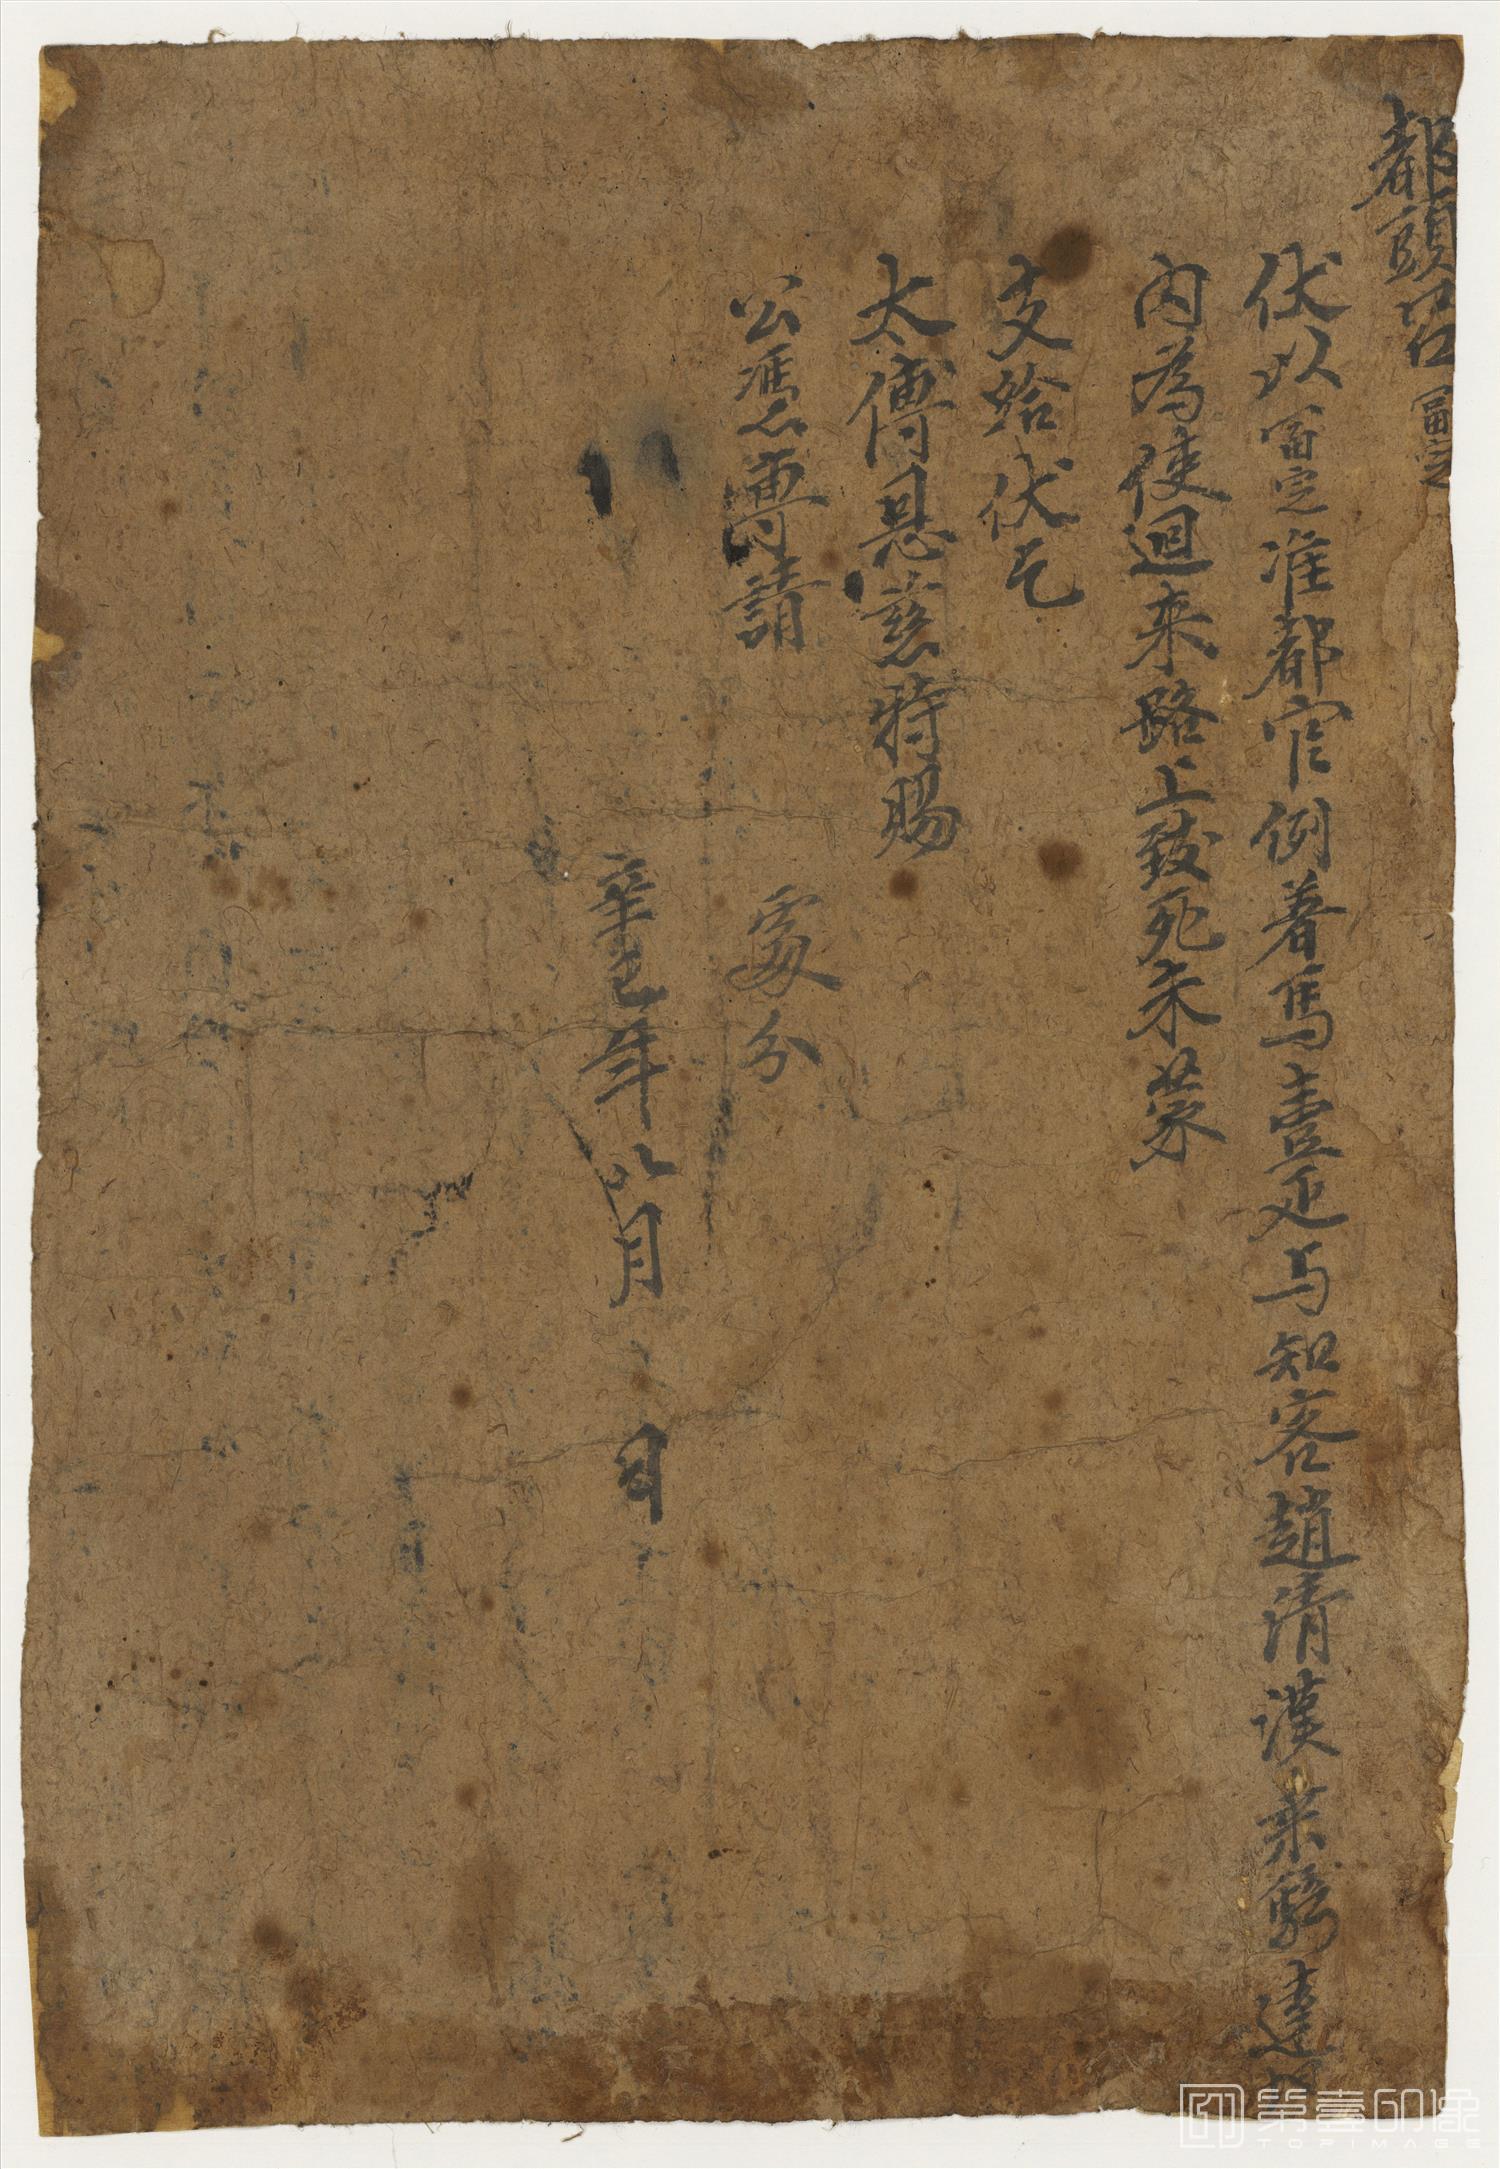 都頭呂富定
伏以富定准都官例著馬壹疋与知客趙清漢乘騎達坦
內為使迴来路上致死未蒙
支給伏乞
太傅恩慈特賜
公憑專請
處分
辛巳年八月 日
第壹印像
TOPIMAGE